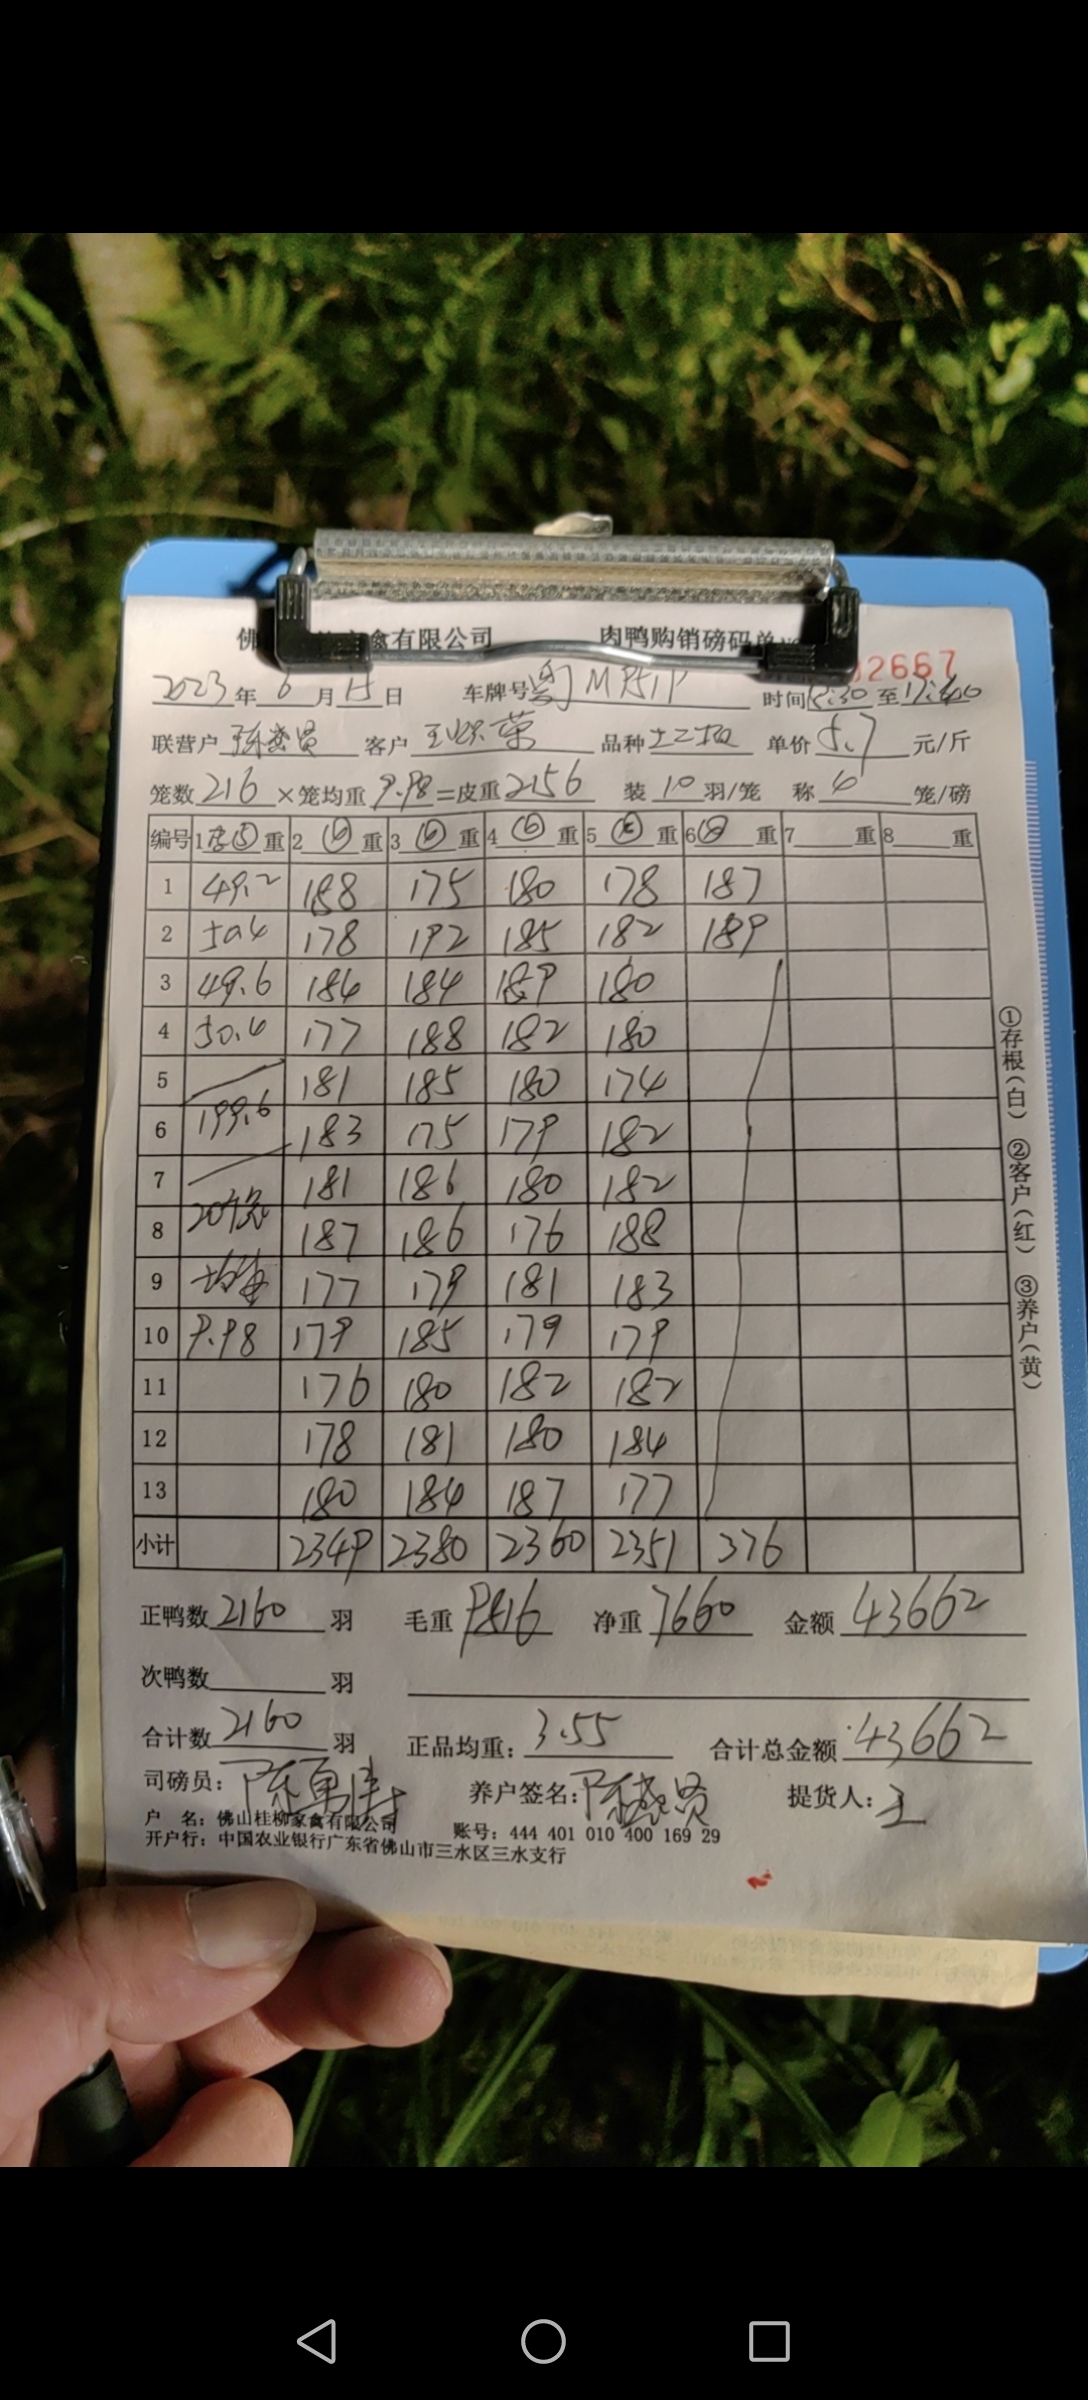 佛 禽有限公司 肉鸭购销磅码单 2667
2023年6月15日 车牌号 粤 时间 至
联营户 客户 王 荣 品种 单价5.7元/斤
笼数216×笼均重9.98=皮重2156 装10羽/笼 称4笼/磅
编号 1 ⑤重 2 重 3 重 4 重 5 重 6 重 7 重 8 重
1 49.2 188 175 180 178 187
2 50.4 178 192 185 182 189
3 49.6 184 184 189 180
4 50.4 177 188 182 180
5 181 185 180 174
6 199.6 183 175 179 182
7 181 186 180 182
8 20 187 186 176 188
9 177 179 181 183
10 9.98 179 185 179 179
11 176 180 182 182
12 178 181 180 184
13 180 184 187 177
小计 2349 2380 2360 2351 376
正鸭数2160羽 毛重9816 净重7660 金额43662
次鸭数 羽
合计数2160羽 正品均重:3.55 合计总金额43662
司磅员:陈勇涛 养户签名:陈 贤 提货人:王
户 名:佛山桂柳家禽有限公司 账号:444 401 010 400 169 29
开户行:中国农业银行广东省佛山市三水区三水支行
①存根(白) ②客户(红) ③养户(黄)